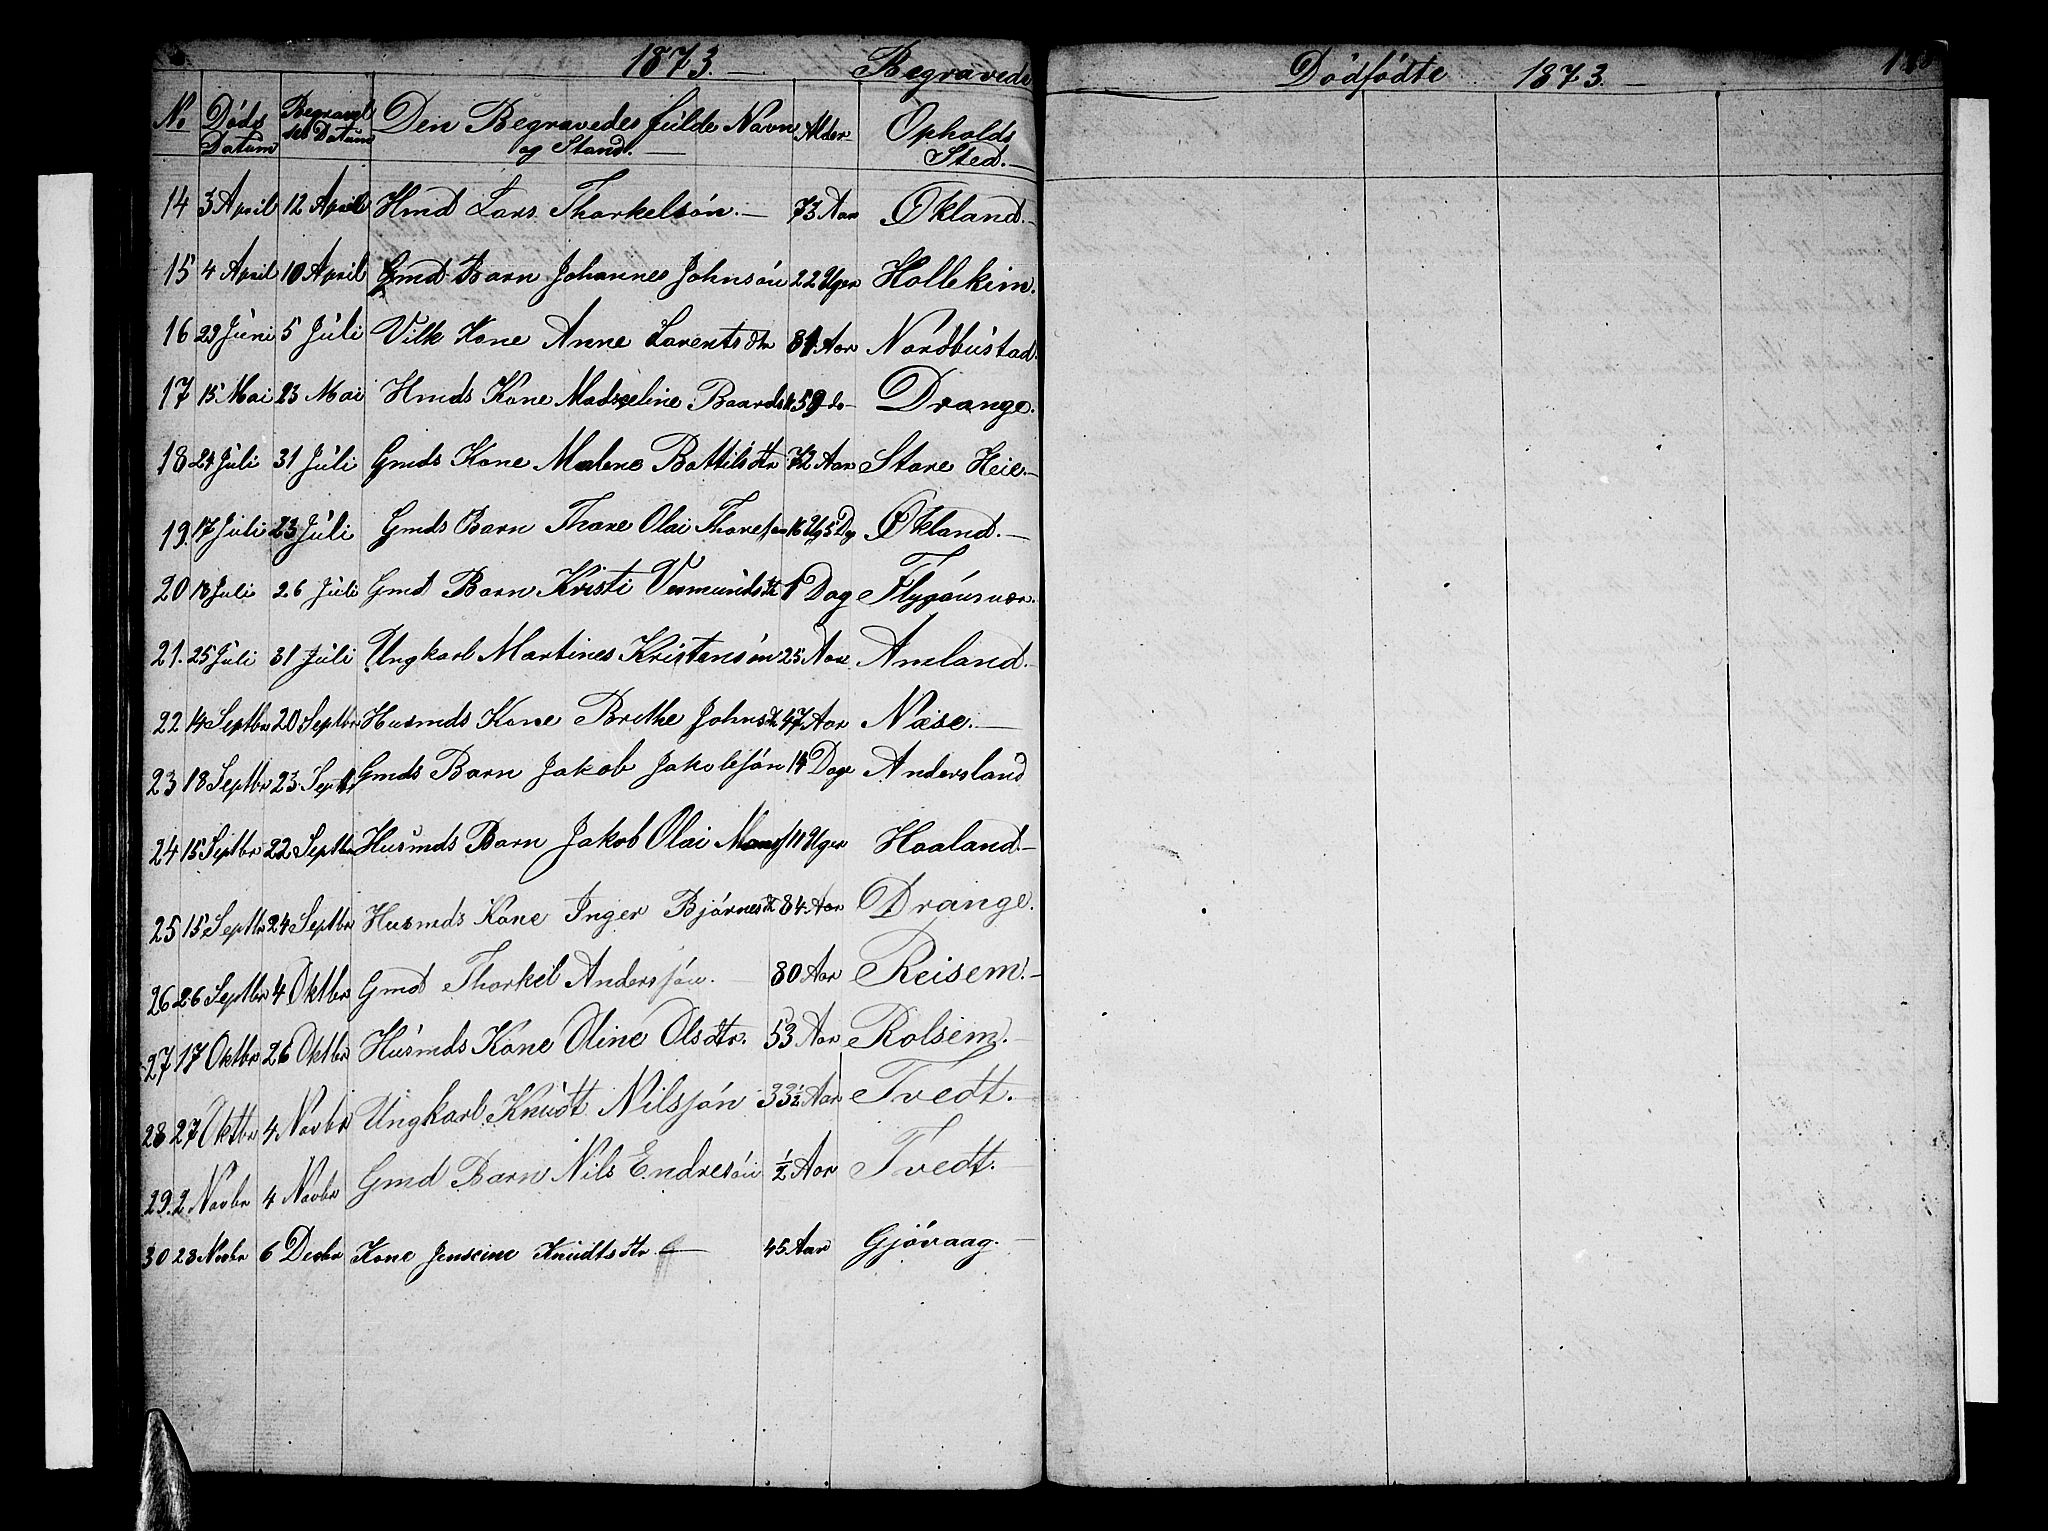 1873. Begravede
No Döds Datum Begravelses Datum Den Begravedes fulde Navn og Stand. Alder Opholds Sted.
14 3 April 12 April Hmd Lars Thorkelsön. 73 Aar Økland.
15 4 April 10 April Gmd Barn Johannes Johnsön 22 Uger Hollekim.
16 29 Juni 5 Juli Vilk Kone Anne Larentsdtr Aar Nordbustad.
17 15 Mai 23 Mai Hmds Kone Madseline Baards 59 do Drange.
18 24 Juli 31 Juli Gmds Kone Malene Bottilsdtr 72 Aar Store Heie.
19. 17 Juli 23 Juli Gmds Barn Thore Olai Thoresen 16 Ug 5 Dg Økland.
20 13 Juli 26 Juli Gmd Barn Kristi Vemundsdt 1 Dag
21. 25 Juli 31 Juli Ungkarl Martines Kristensön 25 Aar Amland.
22 14 Septbr 20 Septbr Husmds Kone Brithe Johnsdt 47 Aar Næse.
23 18 Septbr 23 Septb Gmds Barn Jakob Jakobsön 14 Dage Andersland
24 15 Septbr 22 Septbr Husmds Barn Jakob Olai Mons 11 Uger Haaland.
25 15 Septbr 24 Septbr Husmds Kone Inger Bjórnesdt 84 Aar Drange.
26 26 Septbr 4 Oktbr Gmd Thorkel Andersjón. 80 Aar Reisem.
27 17 Oktbr 26 Oktbr Husmds Kone Oline Olsdtr. 53 Aar Rolsem.
28 27 Oktbr 4 Novbr Ungkarl Knudt Nilsjón 33½ Aar Tvedt.
29. 2 Novbr 4 Novbr Gmd Barn Nils Endresön ½ Aar Tvedt.
30 28 Novbr 6 Decbr Kone Jenseine Knudtsdtr 45 Aar Gjövaag.
Dödfödte 1873.